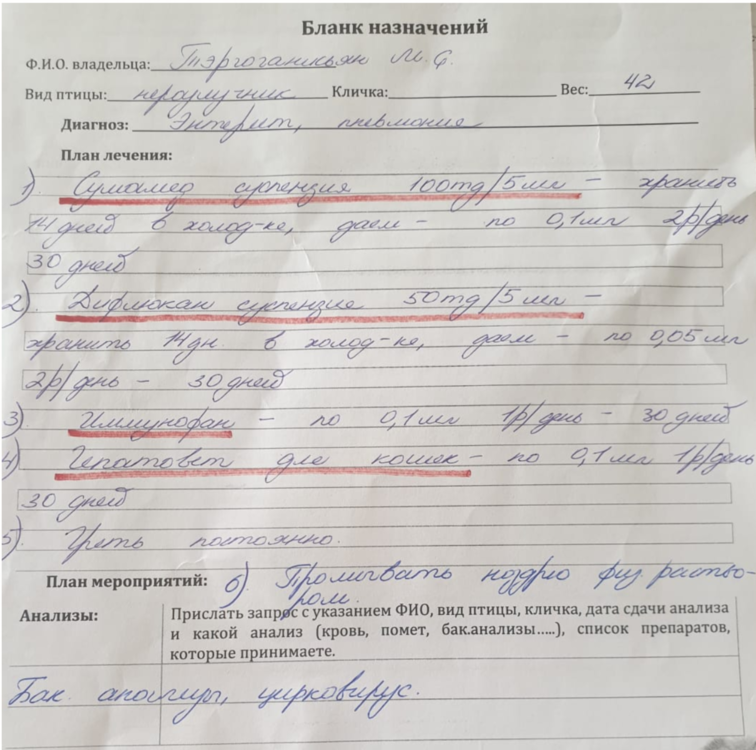 Бланк назначений
Ф.И.О. владельца: М. С.
Вид птицы: неразлучник Кличка: Вес: 42
Диагноз: Энтерит, пневмония
План лечения:
1) Сумамед суспензия 100mg/5мл – хранить
14 дней в холод-ке, даем – по 0,1мл 2р/день
30 дней
2). Дифлюкан суспензия 50mg/5мл –
хранить 14дн в холод-ке, даем – по 0,05мл
2р/день – 30 дней
3) Иммунофан – по 0,1мл 1р/день – 30 дней
4) Гепатовет для кошек – по 0,1мл 1р/день
30 дней
5) Греть постоянно.
План мероприятий: 6). Промывать ноздрю физ раство-
ром.
Анализы: Прислать запрос с указанием ФИО, вид птицы, кличка, дата сдачи анализа
и какой анализ (кровь, помет, бак.анализы…..), список препаратов,
которые принимаете.
Бак. анализы, цирковирус.